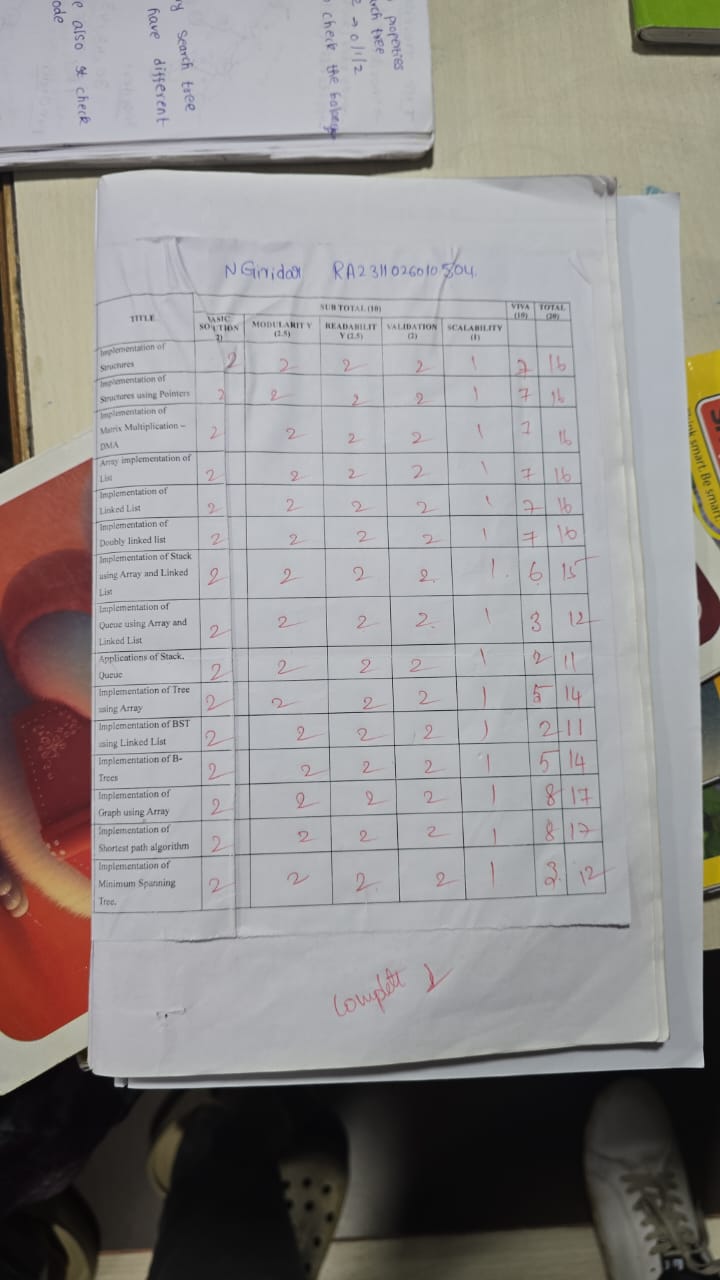 properties
rch tree
2 → 0/1/2
check the
ry search tree
have different
e also st check
ode
N Giridar RA2311026010504.
TITLE SUB TOTAL (10) VIVA (10) TOTAL (20)
BASIC SOLUTION 2) MODULARITY (2.5) READABILIT Y (2.5) VALIDATION (2) SCALABILITY (1)
Implementation of
Structures 2 2 2 2 1 7 16
Implementation of
Structures using Pointers 2 2 2 2 1 7 16
Implementation of
Matrix Multiplication – 2 2 2 2 1 7 16
DMA
Array implementation of
List 2 2 2 2 1 7 16
Implementation of
Linked List 2 2 2 2 1 7 16
Implementation of
Doubly linked list 2 2 2 2 1 7 16
Implementation of Stack
using Array and Linked 2 2 2 2. 1. 6 15
List
Implementation of
Queue using Array and 2 2 2 2. 1 3 12
Linked List
Applications of Stack,
Queue 2 2 2 2 1 2 11
Implementation of Tree
using Array 2 2 2 2 1 5 14
Implementation of BST
using Linked List 2 2 2 2 1 2 11
Implementation of B-
Trees 2 2 2 2 1 5 14
Implementation of
Graph using Array 2 2 2 2 1 8 17
Implementation of
Shortest path algorithm 2 2 2 2 1 8 17
Implementation of
Minimum Spanning 2 2 2. 2 1 3. 12
Tree.
ink smart. Be smart